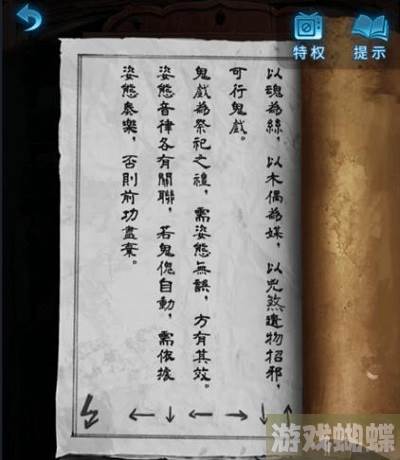 特权
提示
以魂為絲，以木偶為媒，以兇煞遺物招邪，
可行鬼戲。
鬼戲為祭祀之禮，需姿態無誤，方有其效。
姿態音律各有關聯，若鬼傀自動，需依據
姿態奏樂，否則前功盡棄。
←↓←→↓↑
游戏蝴蝶